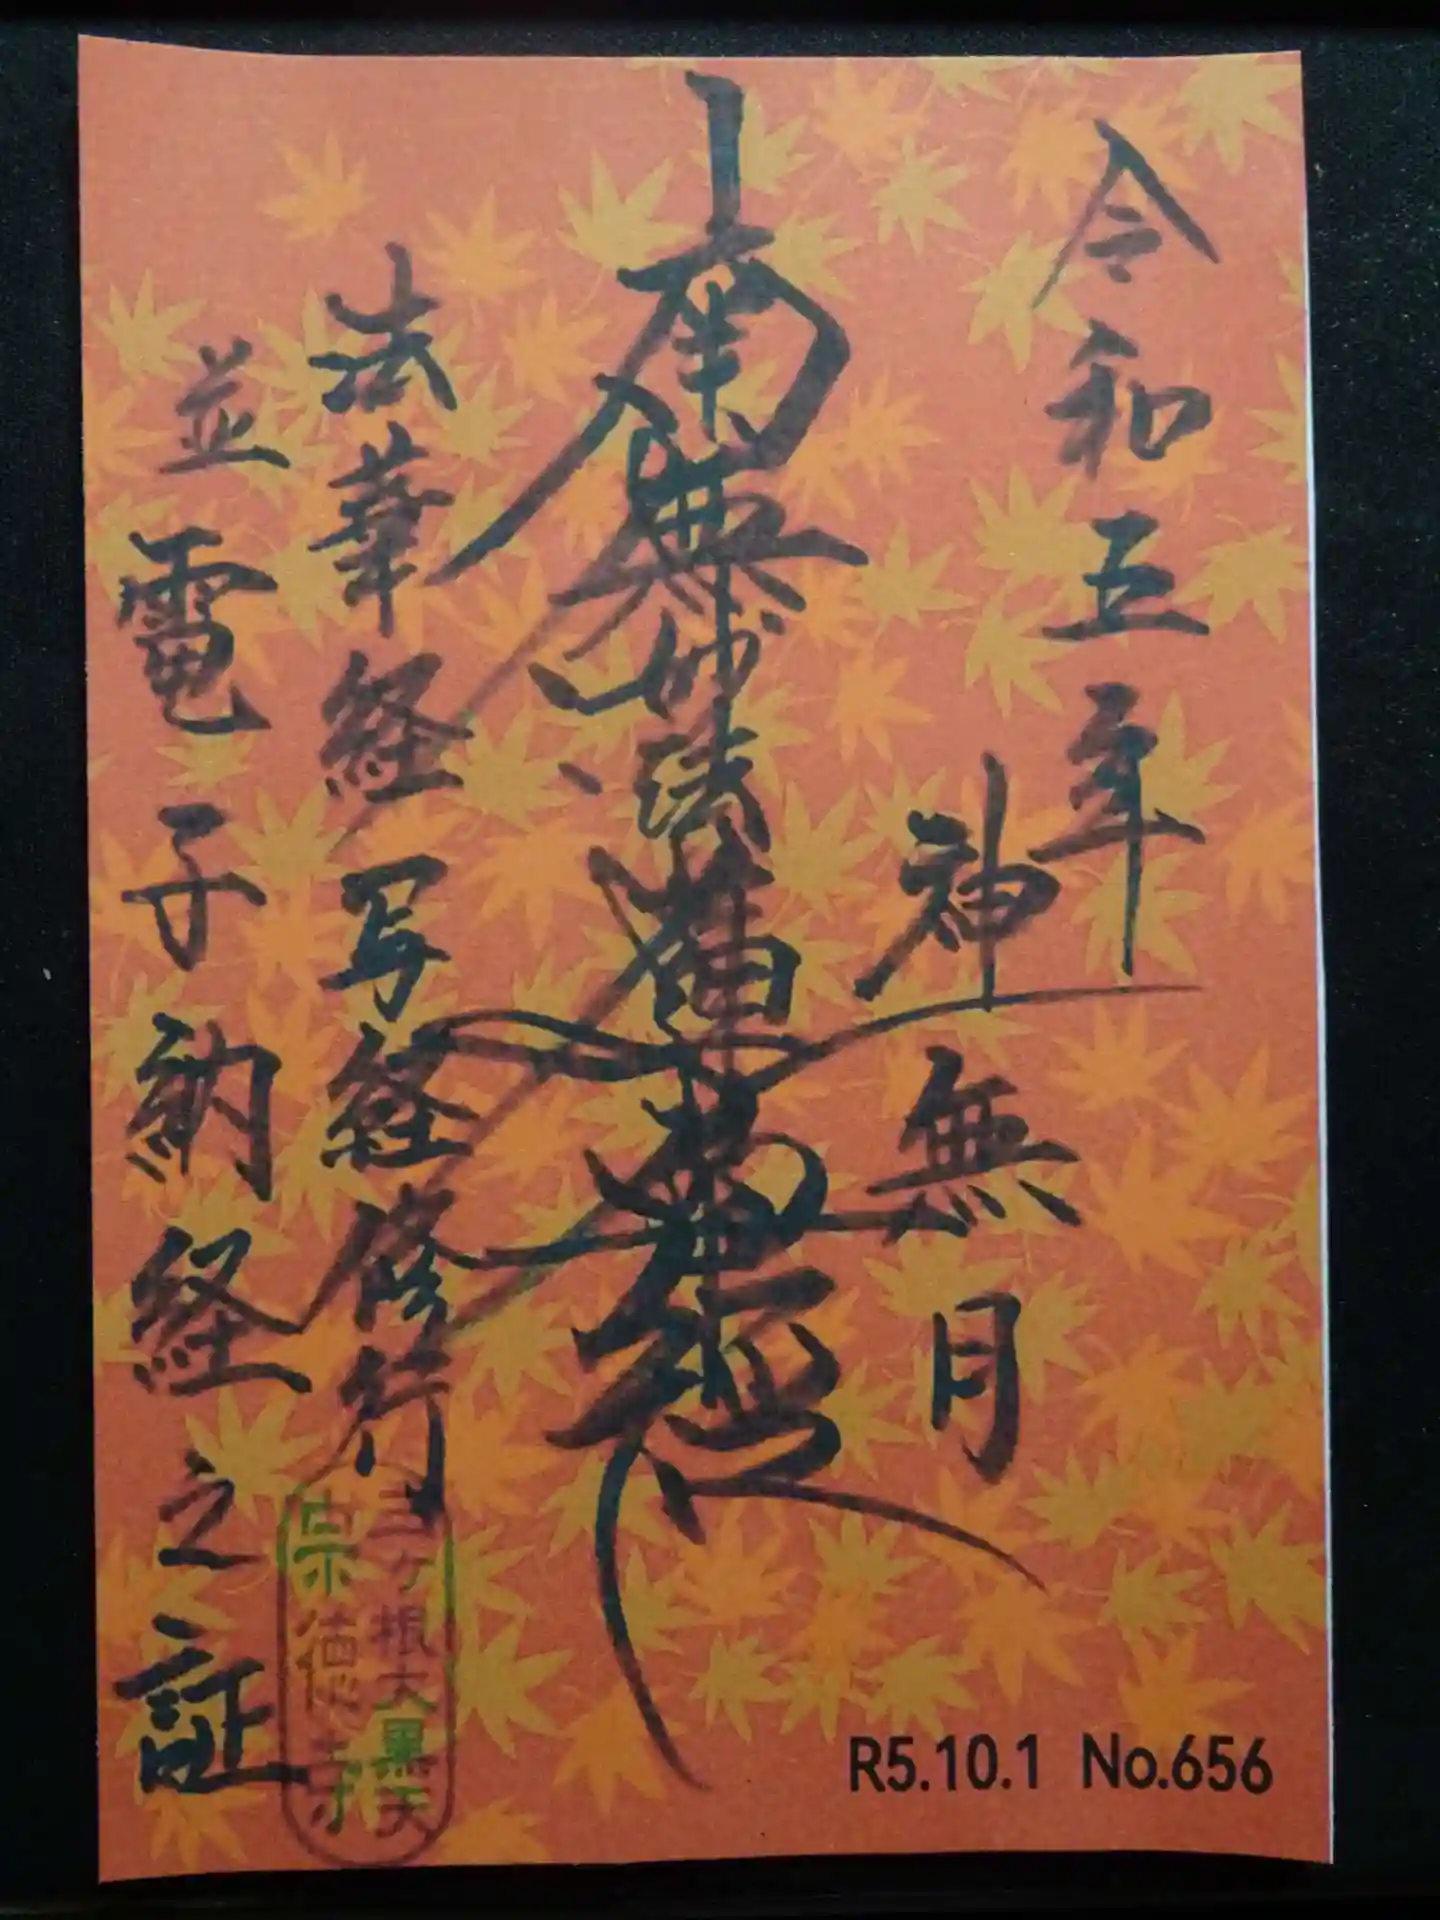 令和五年
神無月
南無妙法蓮華経
法華経写経修行
並電子納経之証
三ヶ根大黒天
宗徳寺
R5.10.1 No.656